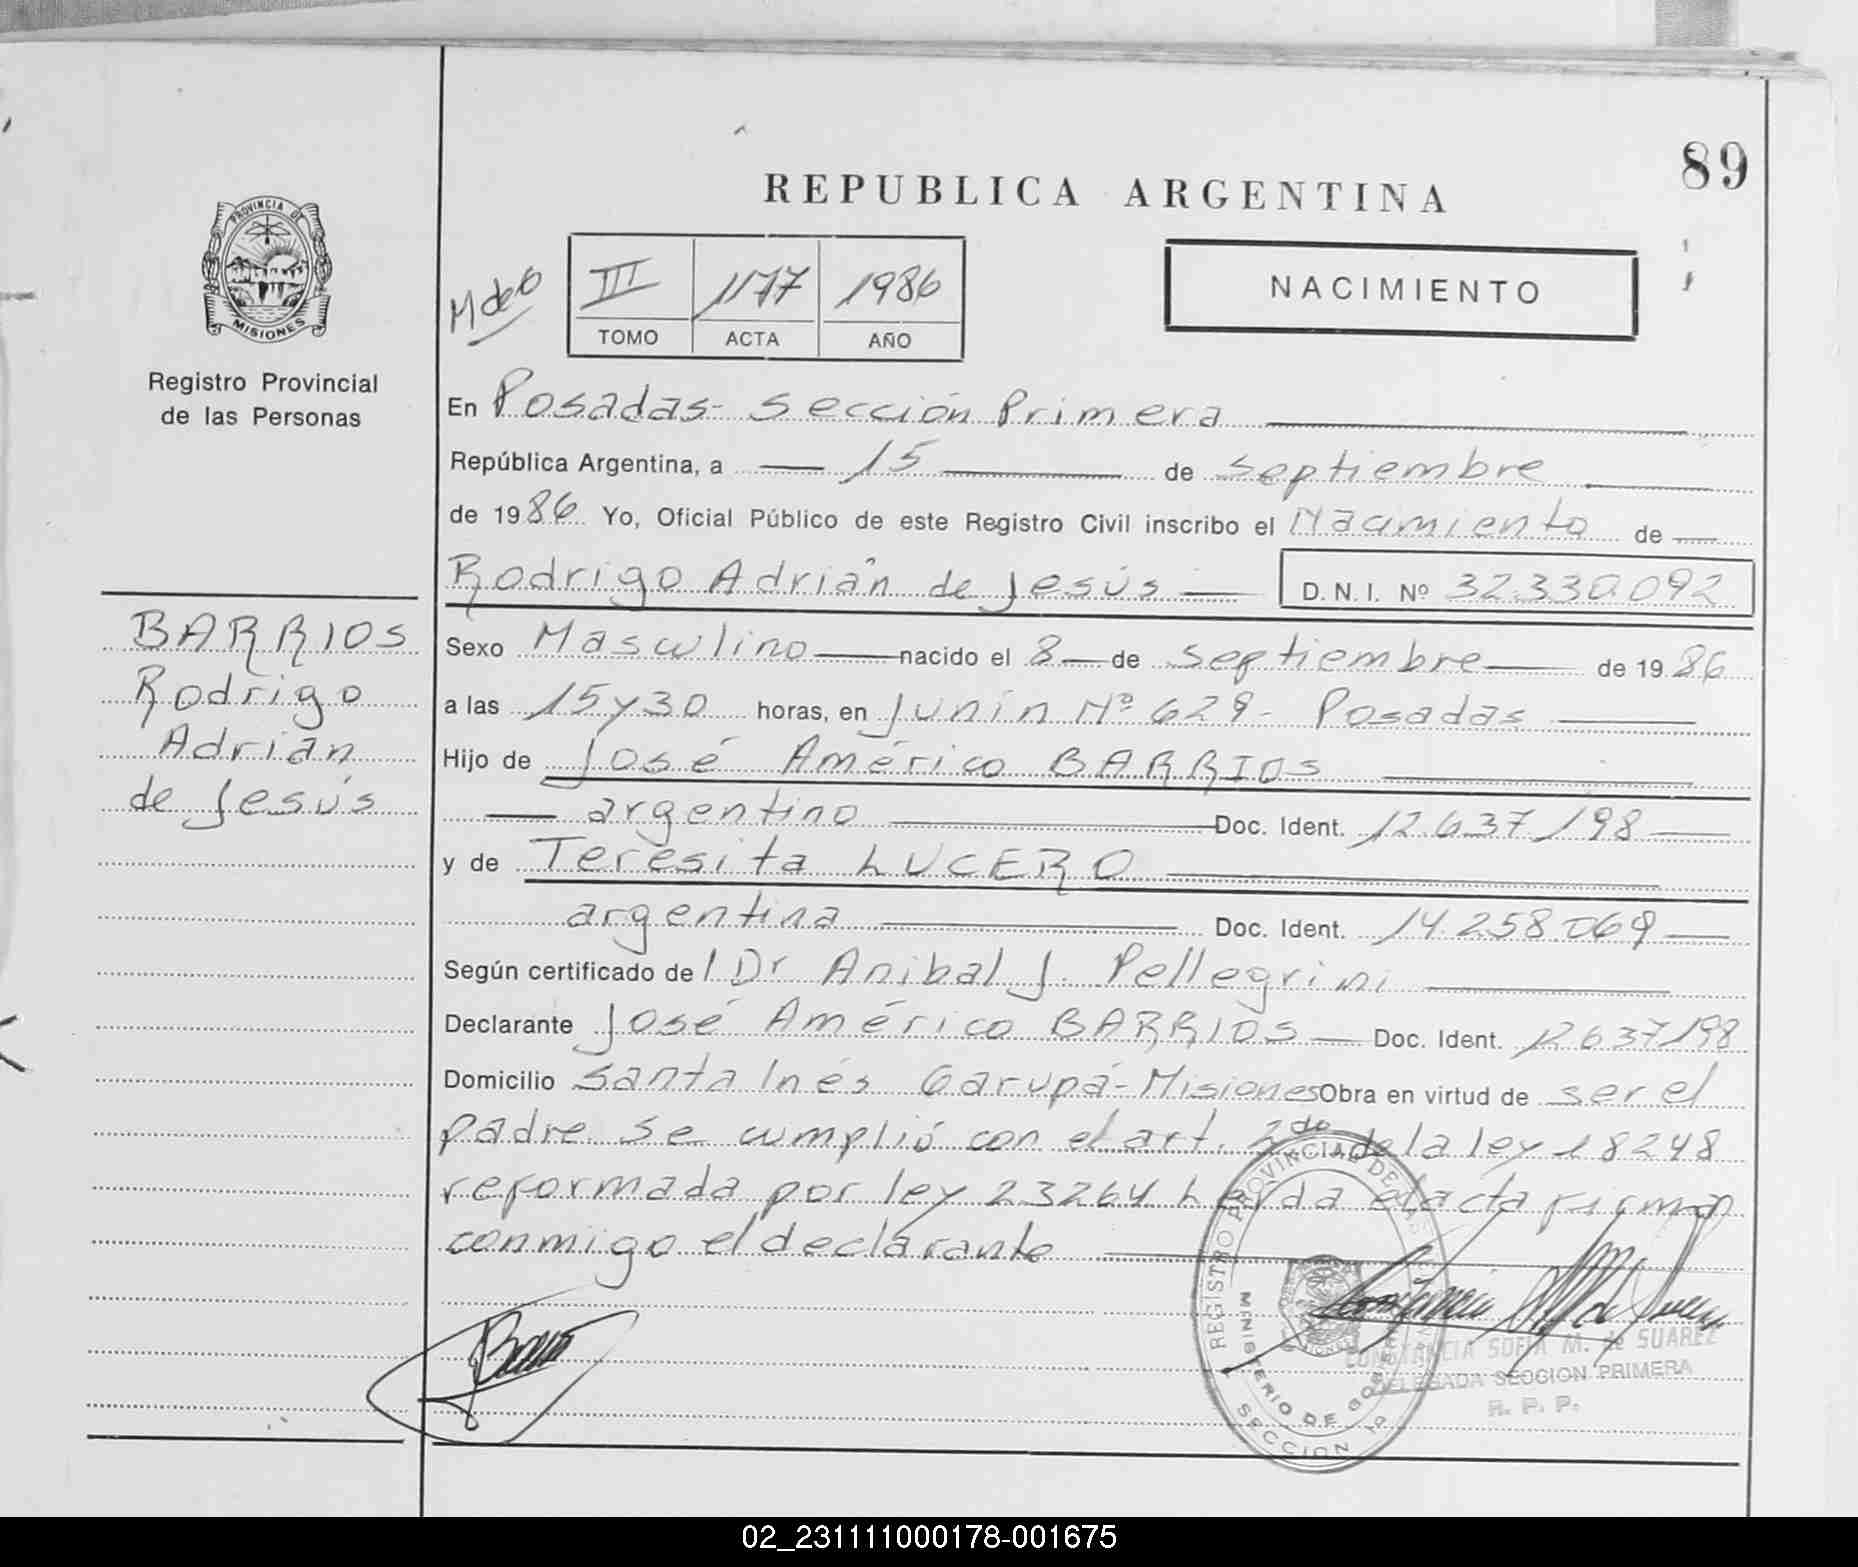 89
REPUBLICA ARGENTINA
PROVINCIA DE
MISIONES
Registro Provincial
de las Personas
M de O
III 1177 1986
TOMO ACTA AÑO
NACIMIENTO
En Posadas- Sección Primera
República Argentina, a 15 de Septiembre
de 1986 Yo, Oficial Público de este Registro Civil inscribo el Nacimiento de
Rodrigo Adrián de Jesús D. N. I. Nº 32.330.092
BARRIOS
Rodrigo
Adrián
de Jesús
Sexo Masculino nacido el 8 de Septiembre de 1986
a las 15 y 30 horas, en Junín Nº 629- Posadas
Hijo de José Américo BARRIOS
argentino Doc. Ident. 12.637.198
y de Teresita LUCERO
argentina Doc. Ident. 14.258.069
Según certificado del Dr Anibal J. Pellegrini
Declarante José Américo BARRIOS Doc. Ident. 12.637.198
Domicilio Santa Inés Garupá- Misiones Obra en virtud de ser el
padre se cumplió con el art. 2do de la ley 18248
reformada por ley 23264 Leída el acta firman
conmigo el declarante
REGISTRO PROVINCIAL DE LAS PERSONAS
MINISTERIO DE GOBIERNO
SECCION 1a
CONSTANCIA SOFIA M. de SUAREZ
DELEGADA SECCION PRIMERA
R. P. P.
02_231111000178-001675